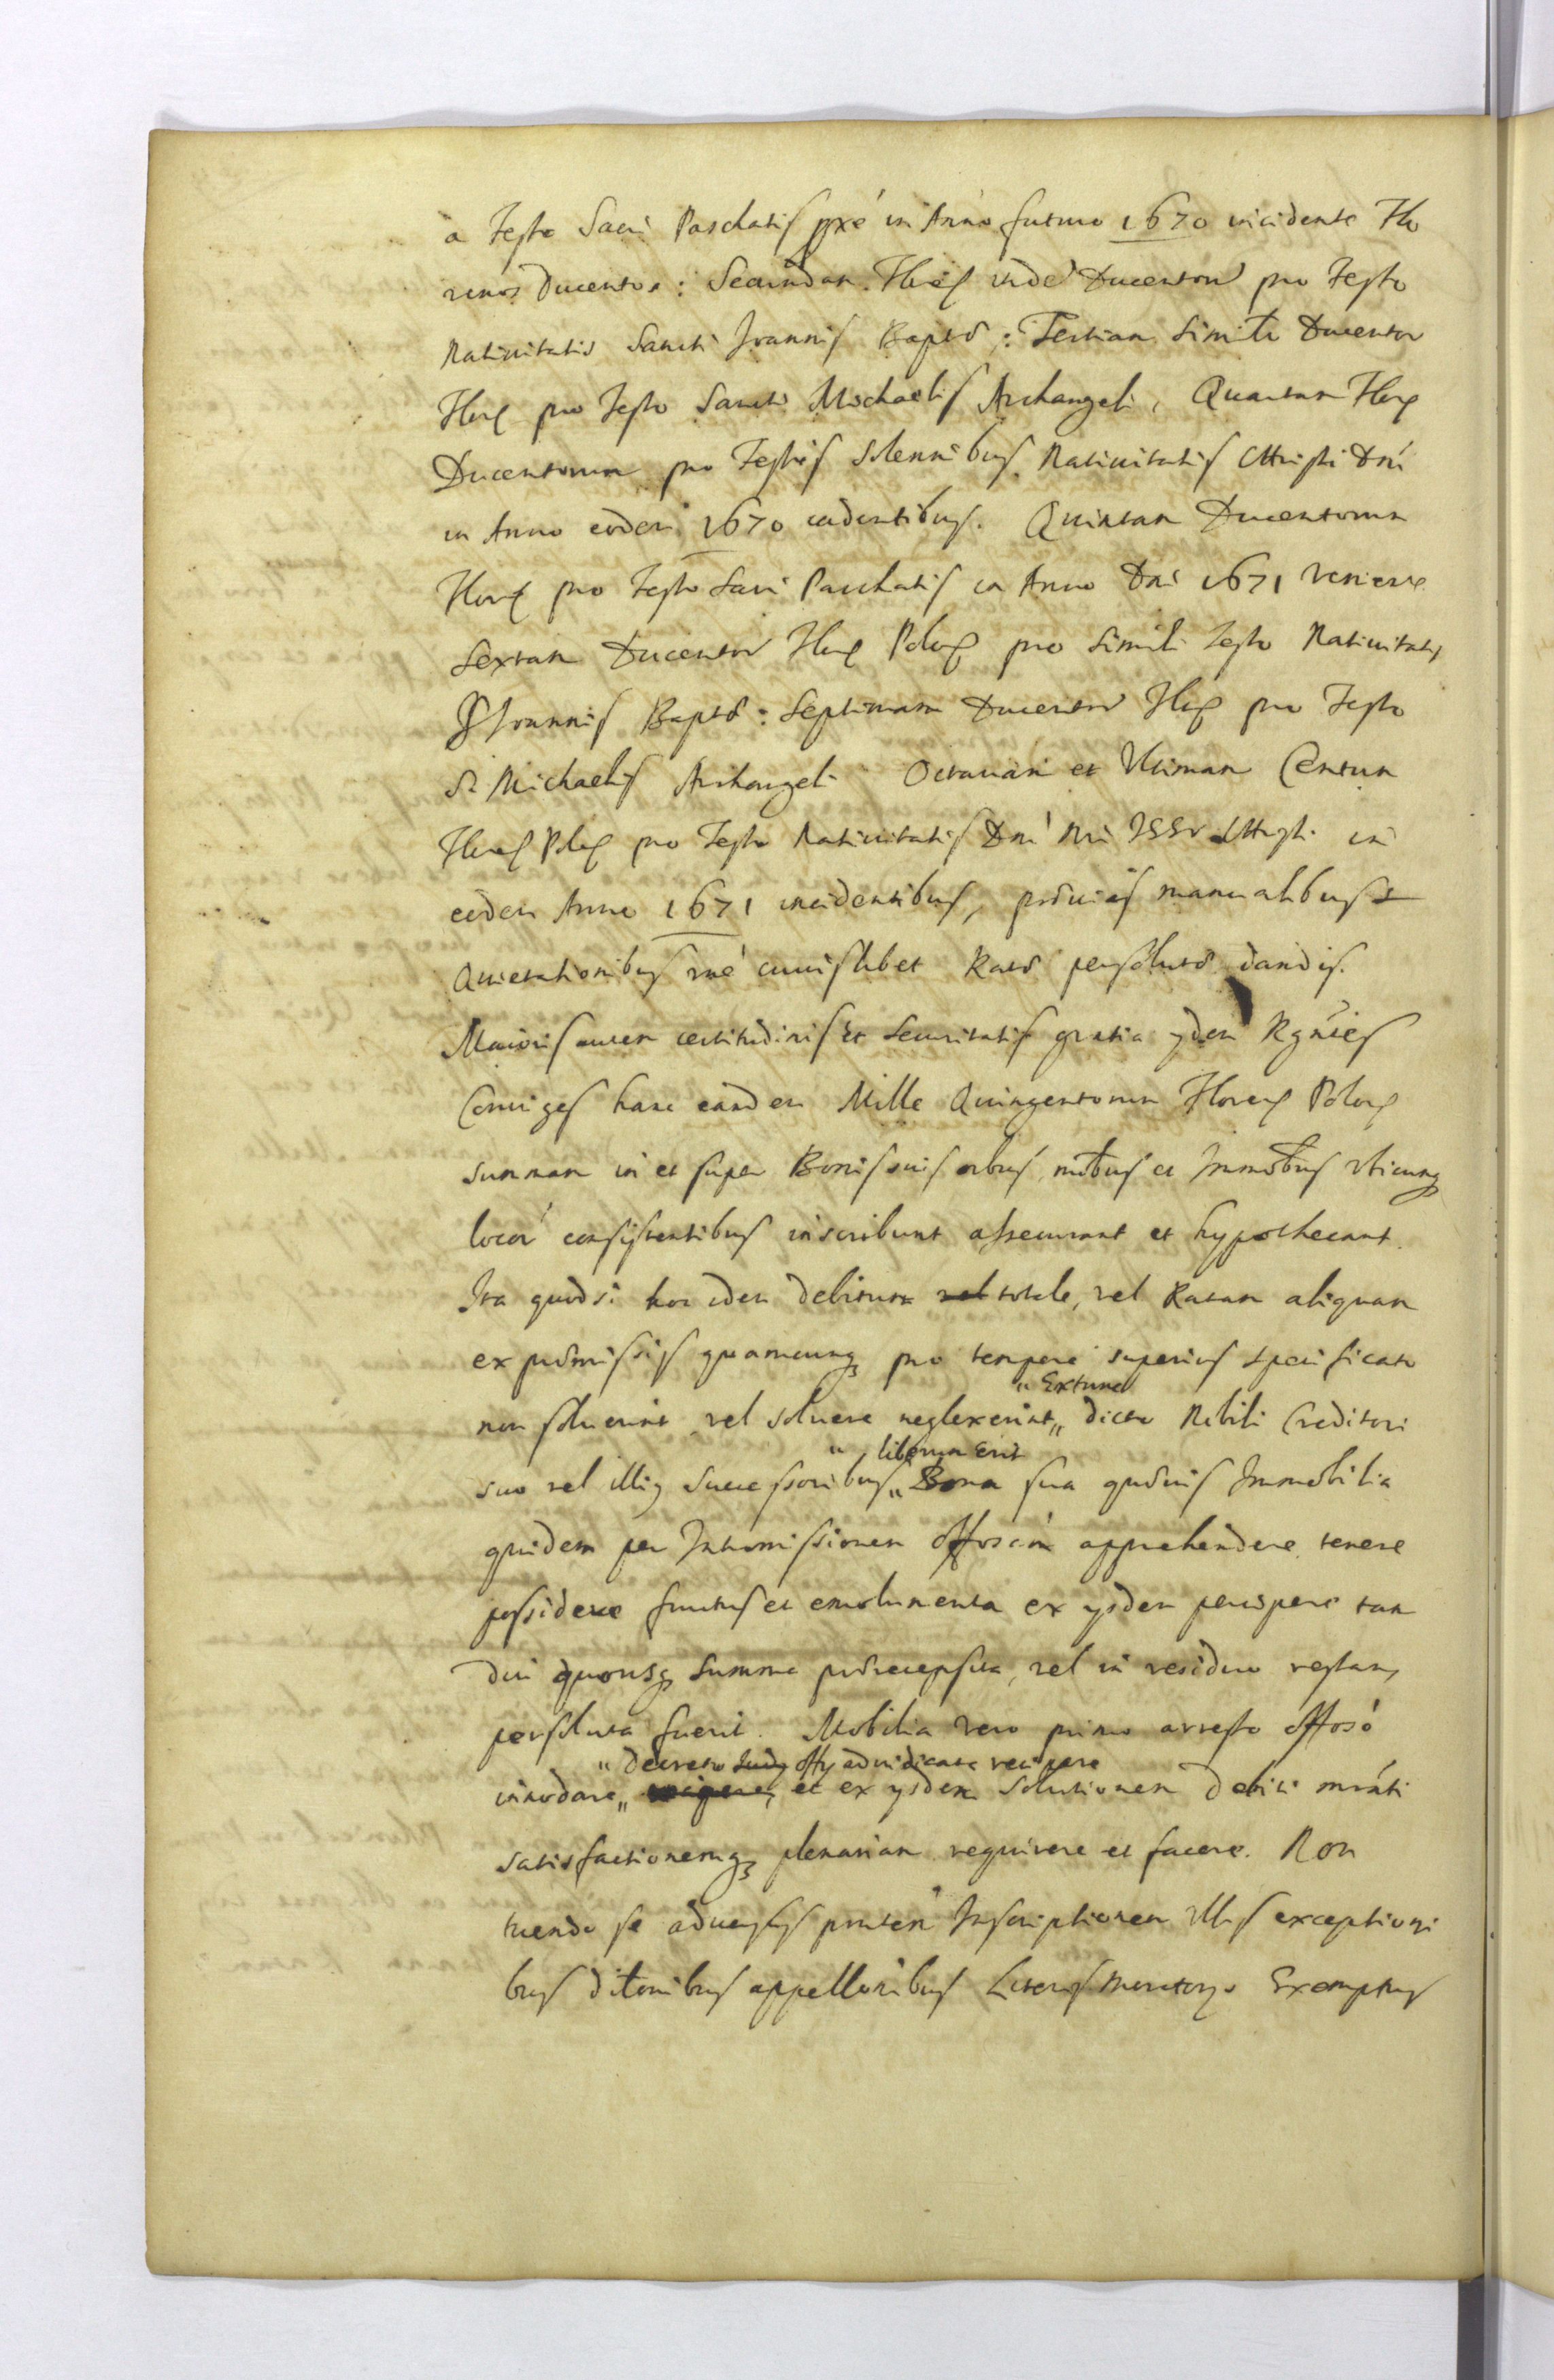 a Festo Sacri Paschatis pxe in Anno futuro 1670 incidente Flo
renos Ducentos: Secundam Floren: inde Ducentor pro Festo
Natiuitatis Sancti Joannis Bapt: Tertiam Simile Ducentor
Flor pro Festo Sancti Michaelis Archangeli, Quartam Flor
Ducentorum pro Festis solennibus Natiuitatis Christi Dni
in Anno eodem 1670 cadentibus. Quintam Ducentorum
Flor pro Festo Sacri Paschatis in Anno Dni 1671
Sextam Ducentor Flor Polon pro simili Festo Natiuitatis
S Joannis Bapt: Septimam Ducentor Flor pro Festo
S. Michaelis Archangeli Octauam et Vltimam Centum
Floren Pol pro Festo Natiuitatis Dni Nri Christi in
eodem Anno 1671 incidentibus, manualibus
Quietationibus cuiuslibet Ratae persolutae dandis.
Maioris autem certitudinis et securitatis gratia ijdem Rgntes
Coniuges hanc eandem Mille Quingentorum Floren Polon
summam in et super Bonis suis oibus, mobus et Immobus vbicunq
locor consistentibus inscribunt assecurant et hypothecant.
Ita quod si hoc idem debitum vel totale, vel Ratam aliquam
ex praemissis quamcunq pro tempore superius specificato
non soluerint vel soluere neglexerint„ dicto Nobili Creditori
„ Extunc
suo vel illig Successoribus„ Bona sua quaeuis Immobilia
„ liberum erit
quidem per Intromissionem offosam apprehendere tenere
possidere fructus et emolumenta ex ijsdem percipere tam
diu quousq summa praerecensita, vel in residuo restans
persoluta fuerit. Mobilia vero primo arresto offoso
„ decreto Judy offy adiudicata recipere
innodare„ recipere, et ex ijsdem solutionem debiti mrati
satisfactionemq plenariam requirere et facere. Non
tuendo se aduersus pntem Inscriptionem vllis exceptioni
bus dilonibus appellonibus Literis Exemptus